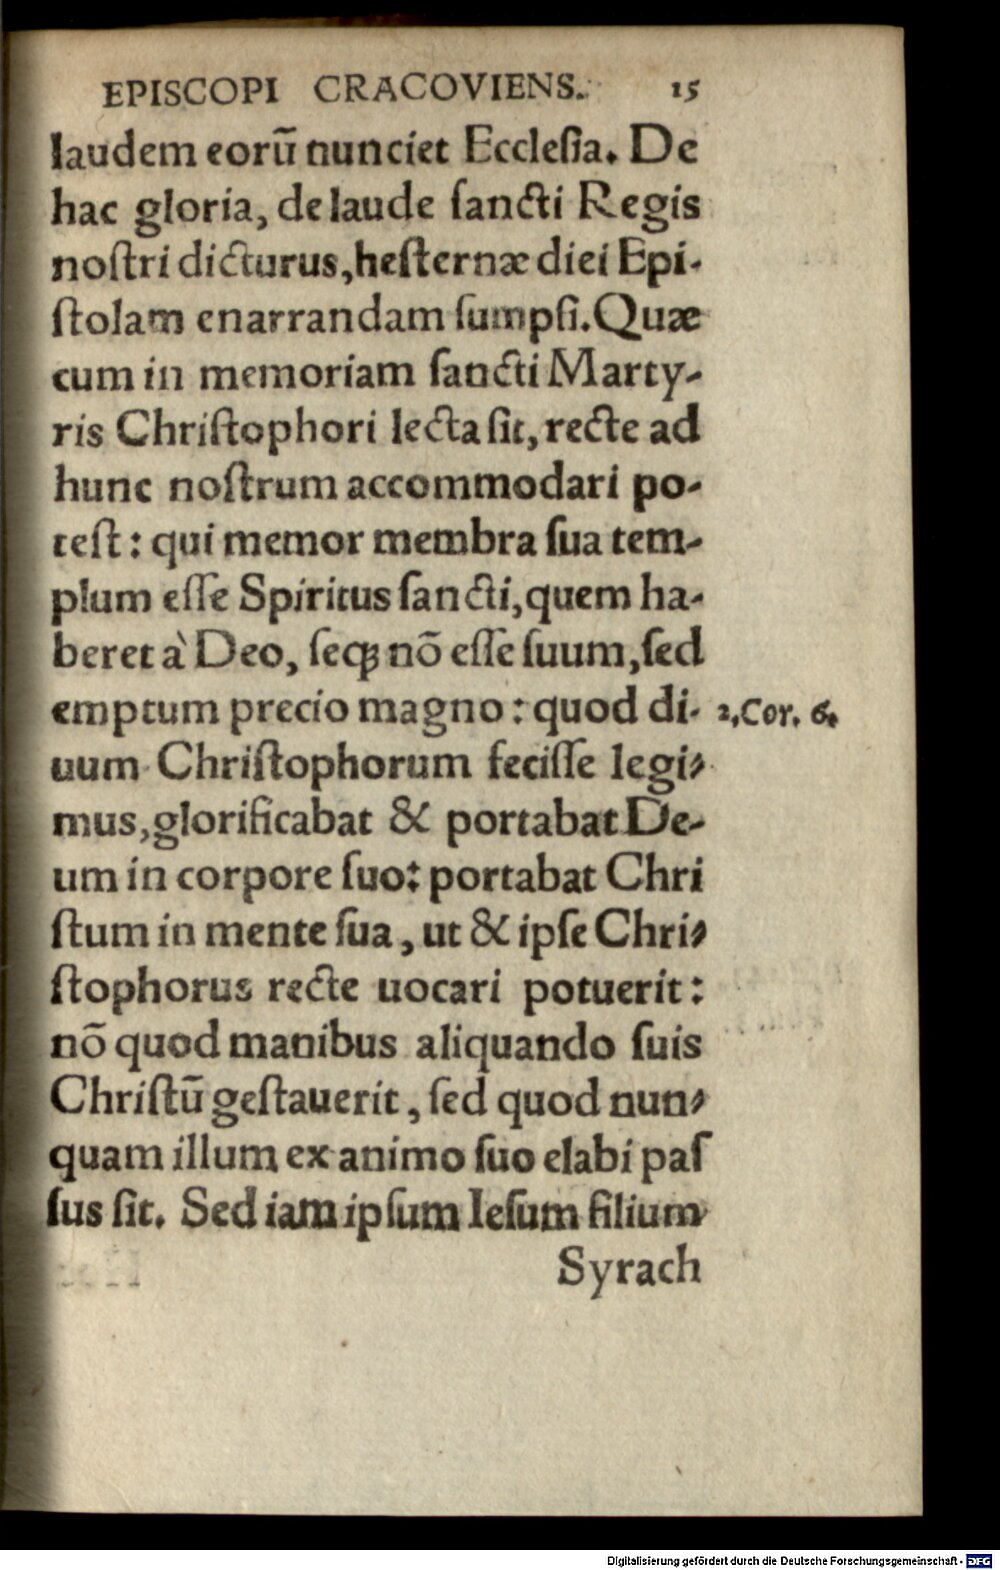 EPISCOPI CRACOVIENS. 15
laudem eorū nunciet Ecclesia. De
hac gloria, de laude sancti Regis
nostri dicturus, hesternæ diei Epi-
stolam enarrandam sumpsi. Quæ
cum in memoriam sancti Marty-
ris Christophori lecta sit, recte ad
hunc nostrum accommodari po-
test: qui memor membra sua tem-
plum esse Spiritus sancti, quem ha-
beret à Deo, seqꝫ nō esse suum, sed
emptum precio magno: quod di- 2. Cor. 6.
uum Christophorum fecisse legi-
mus, glorificabat & portabat De-
um in corpore suo: portabat Chri
stum in mente sua, ut & ipse Chri-
stophorus recte uocari potuerit:
nō quod manibus aliquando suis
Christū gestauerit, sed quod nun-
quam illum ex animo suo elabi pas
sus sit. Sed iam ipsum Iesum filium
Syrach
Digitalisierung gefördert durch die Deutsche Forschungsgemeinschaft - DFG